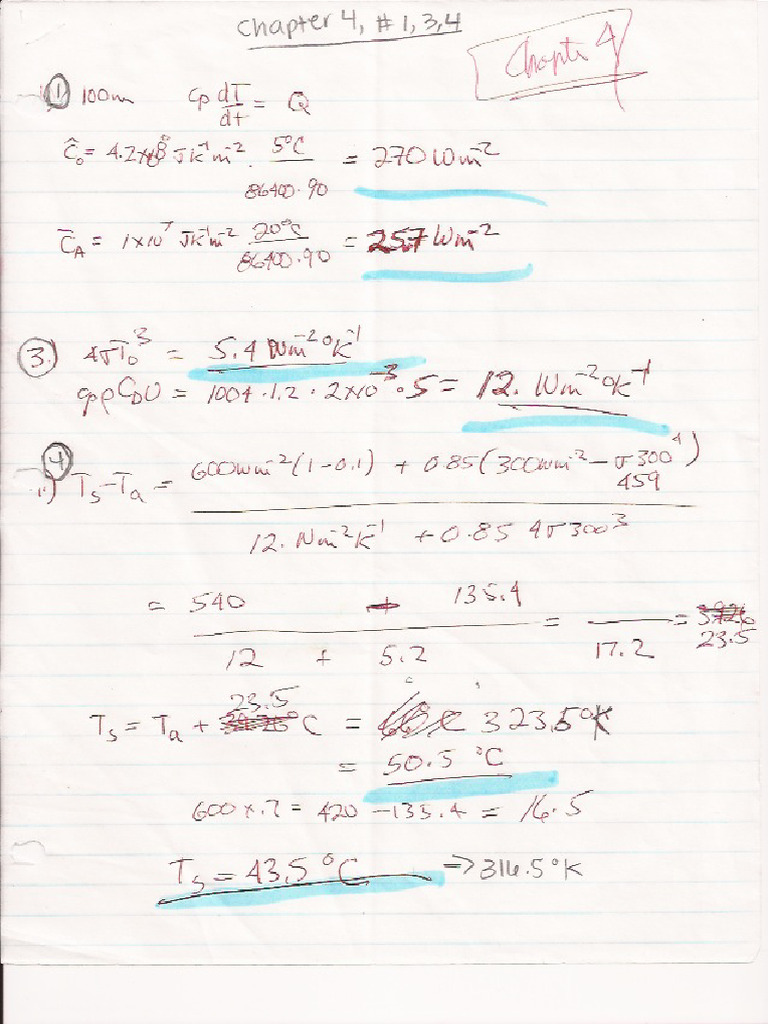 Chapter 4, #1,3,4
Chapter 4
① 100m Cp dT/dt = Q
Ĉo = 4.2×10⁸ JK⁻¹m⁻² · 5°C / 86400·90 = 270 Wm⁻²
C̄A = 1×10⁷ JK⁻¹m⁻² 20°C / 86400·90 = 25.7 Wm⁻²
③ 4σTo³ = 5.4 Wm⁻²°K⁻¹
cpρCDU = 1004·1.2·2×10⁻³·5 = 12. Wm⁻²°K⁻¹
④
1) Ts-Ta = 600wm⁻²(1-0.1) + 0.85(300wm⁻² - σ300⁴)
459
12. Wm⁻²K⁻¹ + 0.85 4σ300³
= 540 + 135.4 = = 23.5
12 + 5.2 17.2
Ts = Ta + 23.5 °C = 323.5°K
= 50.5 °C
600×.7 = 420 - 135.4 = 16.5
Ts = 43.5 °C => 316.5°K